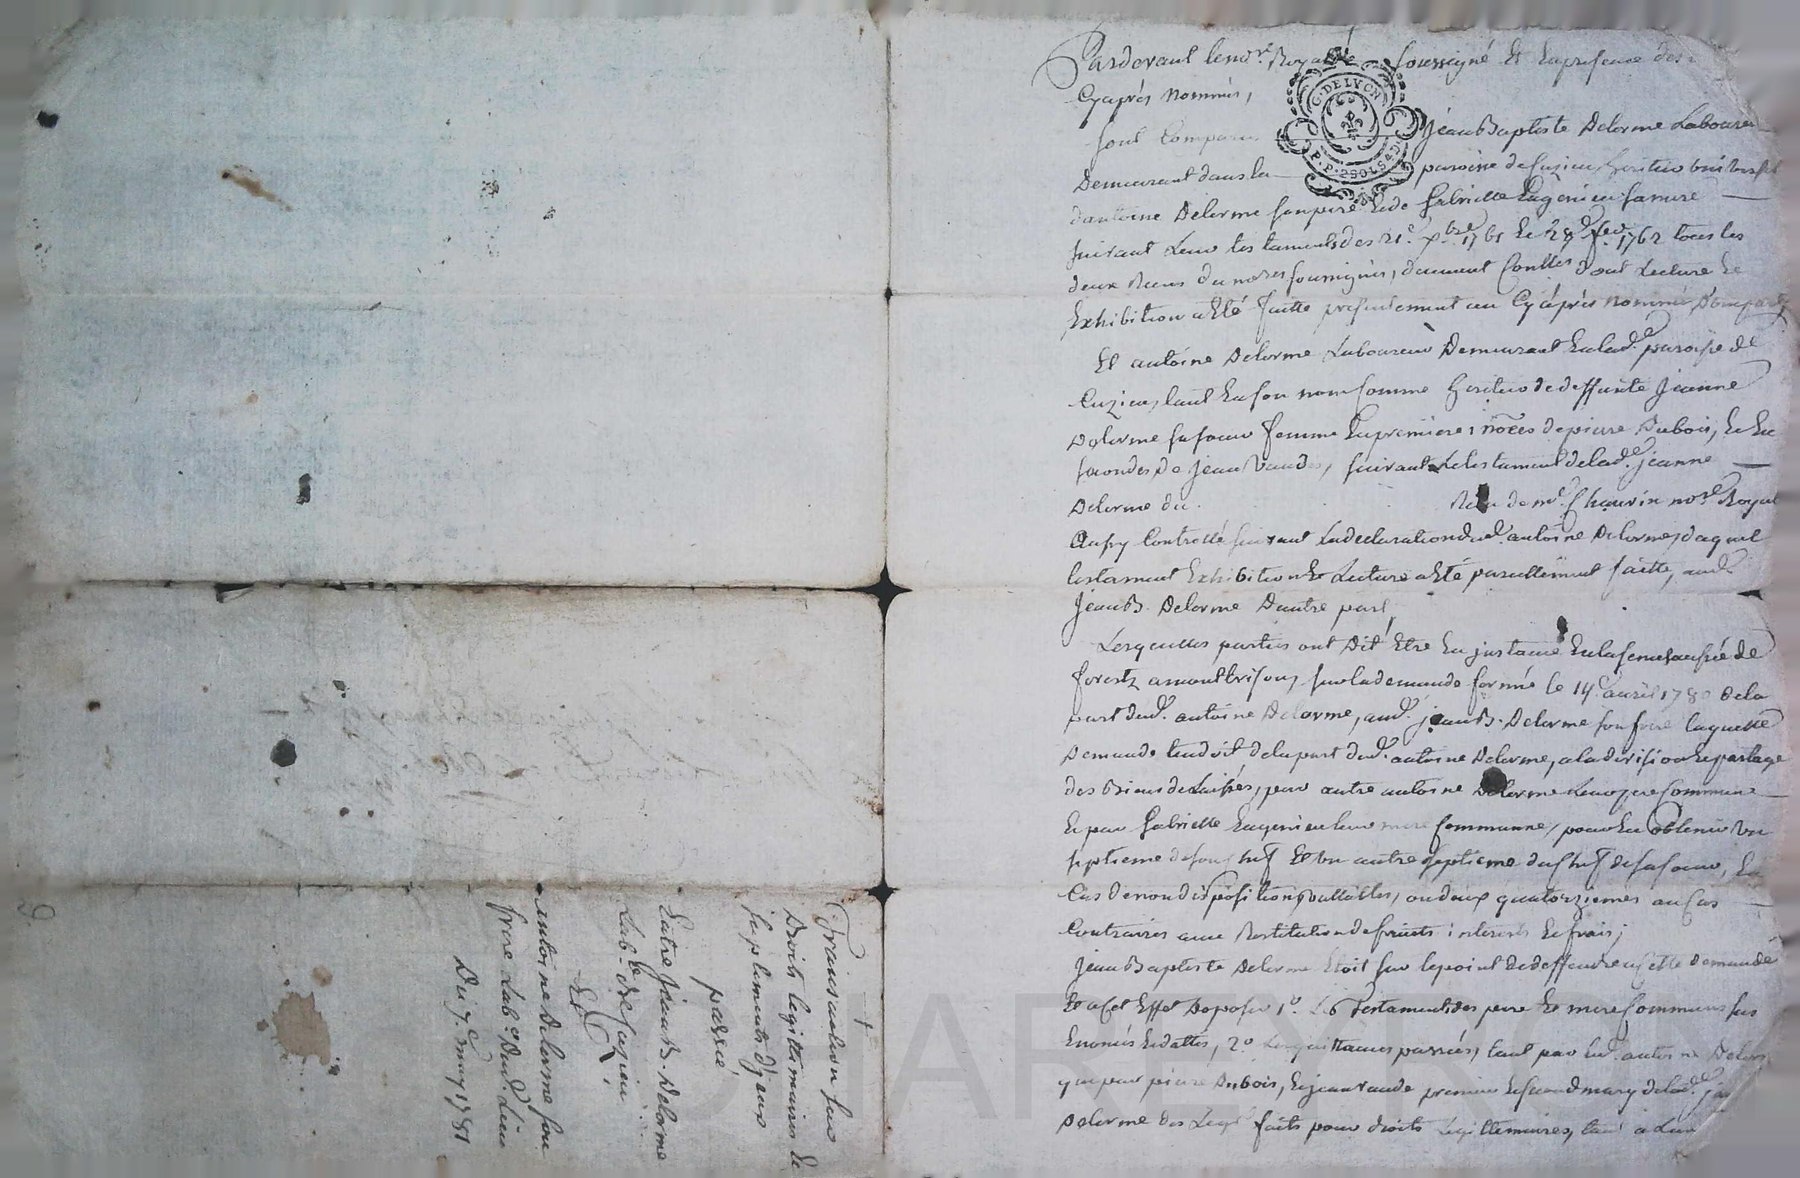 Pardevant le no.re Royal soussigné Et En presence des
Cyaprés Nommés,
sont Comparu
G. DE LYON
P. P. 2 SOLS 4 D
Jean Baptiste Delorme Laboureur
Demeurant dans la paroisse de Cuzieu heritier universel
d'antoine Delorme son pere Et de Gabrielle Eugenieu sa mere
suivant Leur testaments des 21.e 7bre 1761 Et 28.e 1762 tous les
deux Reçus du no.re soussigné, duement Conttes dont Lecture Et
Exhibition a Eté faitte presentement au Cyaprés nommé D'une part
Et antoine Delorme Laboureur Demeurant En lad.e paroisse de
Cuzieu, tant En son nom Comme heritier de deffunte Jeanne
Delorme sa soeur femme En premieres noces de pierre Dubois, Et En
secondes de Jean Vaudes, suivant Le testament de lad.e jeanne
Delorme du
Recu de m.e Chauvin no.re Royal
Contrôllé suivant La declaration dud. antoine Delorme, duquel
testament Exhibition Et Lecture a Eté pareillement faitte, aud.
Jean B. Delorme D'autre part,
Lesquelles parties ont Dit Etre En jnstance En la senechaussée de
forestz a montbrison, sur la demande formée le 14.e avril 1780 de la
part dud. antoine Delorme, aud. jean B. Delorme son frere laquelle
Demande tendoit de la part dud. antoine Delorme, a la division Et partage
des Biens delaissés, par autre antoine Delorme Leur pere Commun
Et par Gabrielle Eugenieu leur mere Commune, pour En obtenir Un
septieme de son chef Et un autre septieme du chef de sa soeur, En
Cas de non dispositions vallables, ou deux quatorziemes au Cas
Contraires avec Restitution de fruits interests Et frais;
Jean Baptiste Delorme Etoit sur le point de deffendre a Cette demande
Et a Cet Effet Deposer 1.o Les Testaments des pere Et mere Communs sus
Enoncés Et dattés, 2.o Les quittances passées, tant par led. antoine Delorme
que par pierre Dubois, Et jean vaude premier Et second mary de lad.e
Delorme des Legs faits pour droits Legittimaires, tant a Lui
Transaction sur
Droits legittimaires Et
suplements d'jceux
passé
Entre Jean B. Delorme
Lab.r de Cuzieu
Et
antoine Delorme son
frere Lab.r Dud. Lieu
Du 7.e may 1781